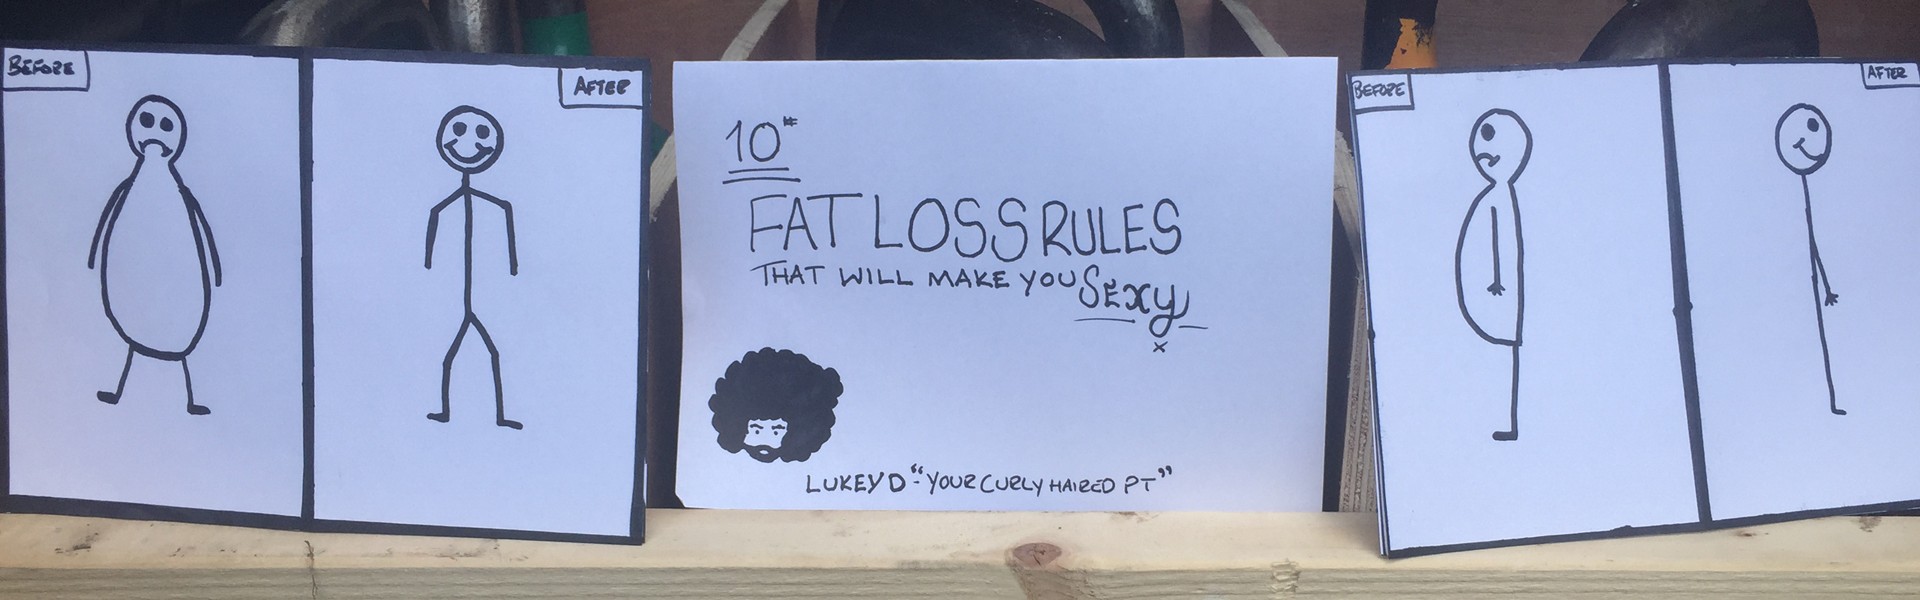 BEFORE
AFTER
10*
FAT LOSS RULES
THAT WILL MAKE YOU SEXY
x
LUKEY D - "YOUR CURLY HAIRED PT"
BEFORE
AFTER